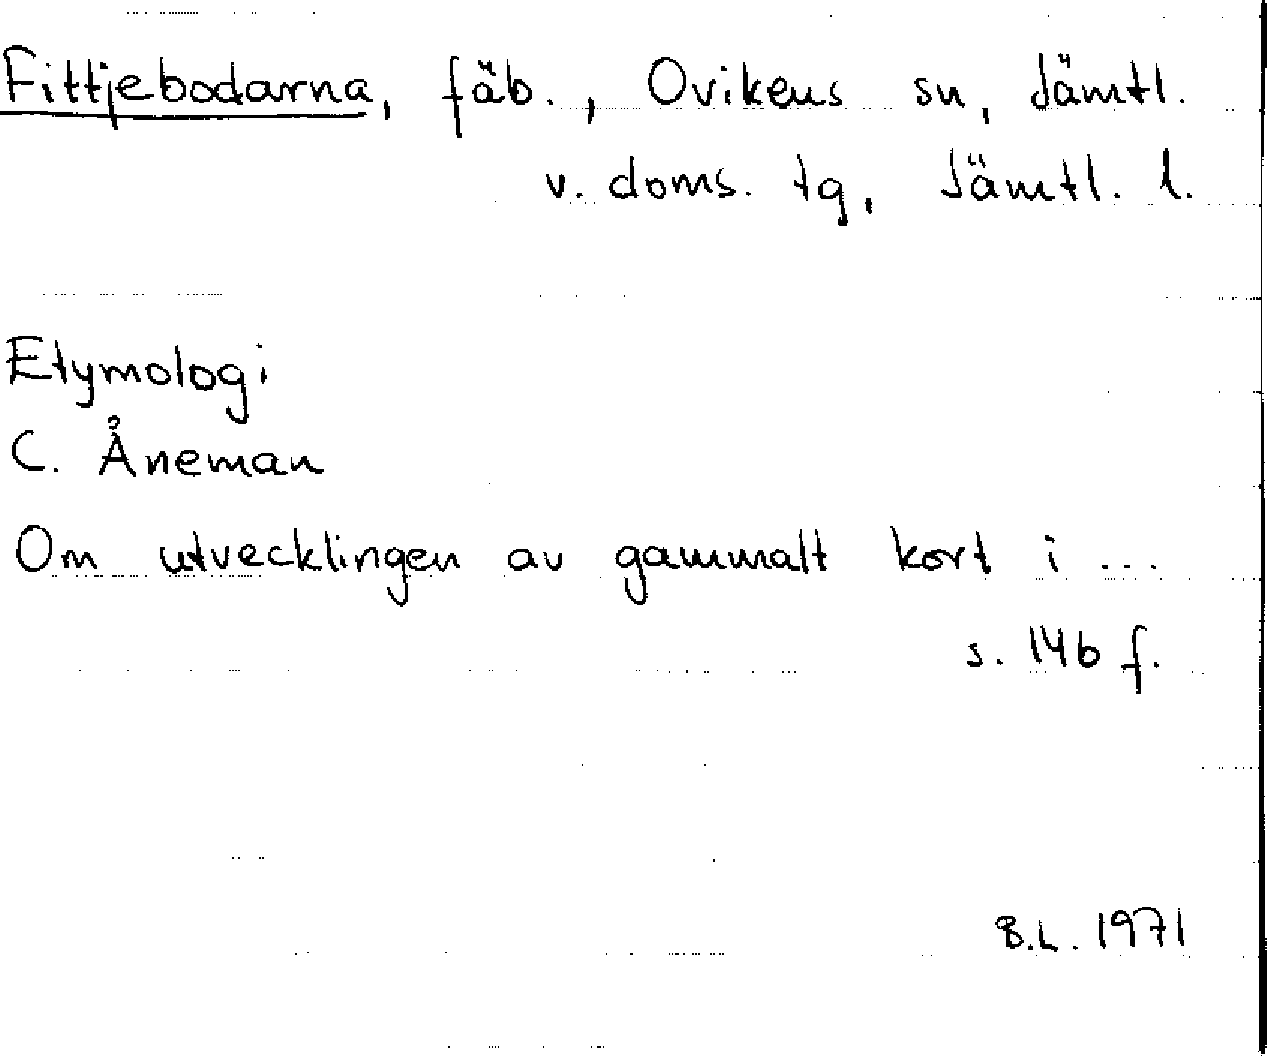 Fittjebodarna, fäb., Ovikens sn, Jämtl.
v. doms. tg, Jämtl. l.
Etymologi
C. Åneman
Om utvecklingen av gammalt kort i ...
s. 146 f.
B.L. 1971